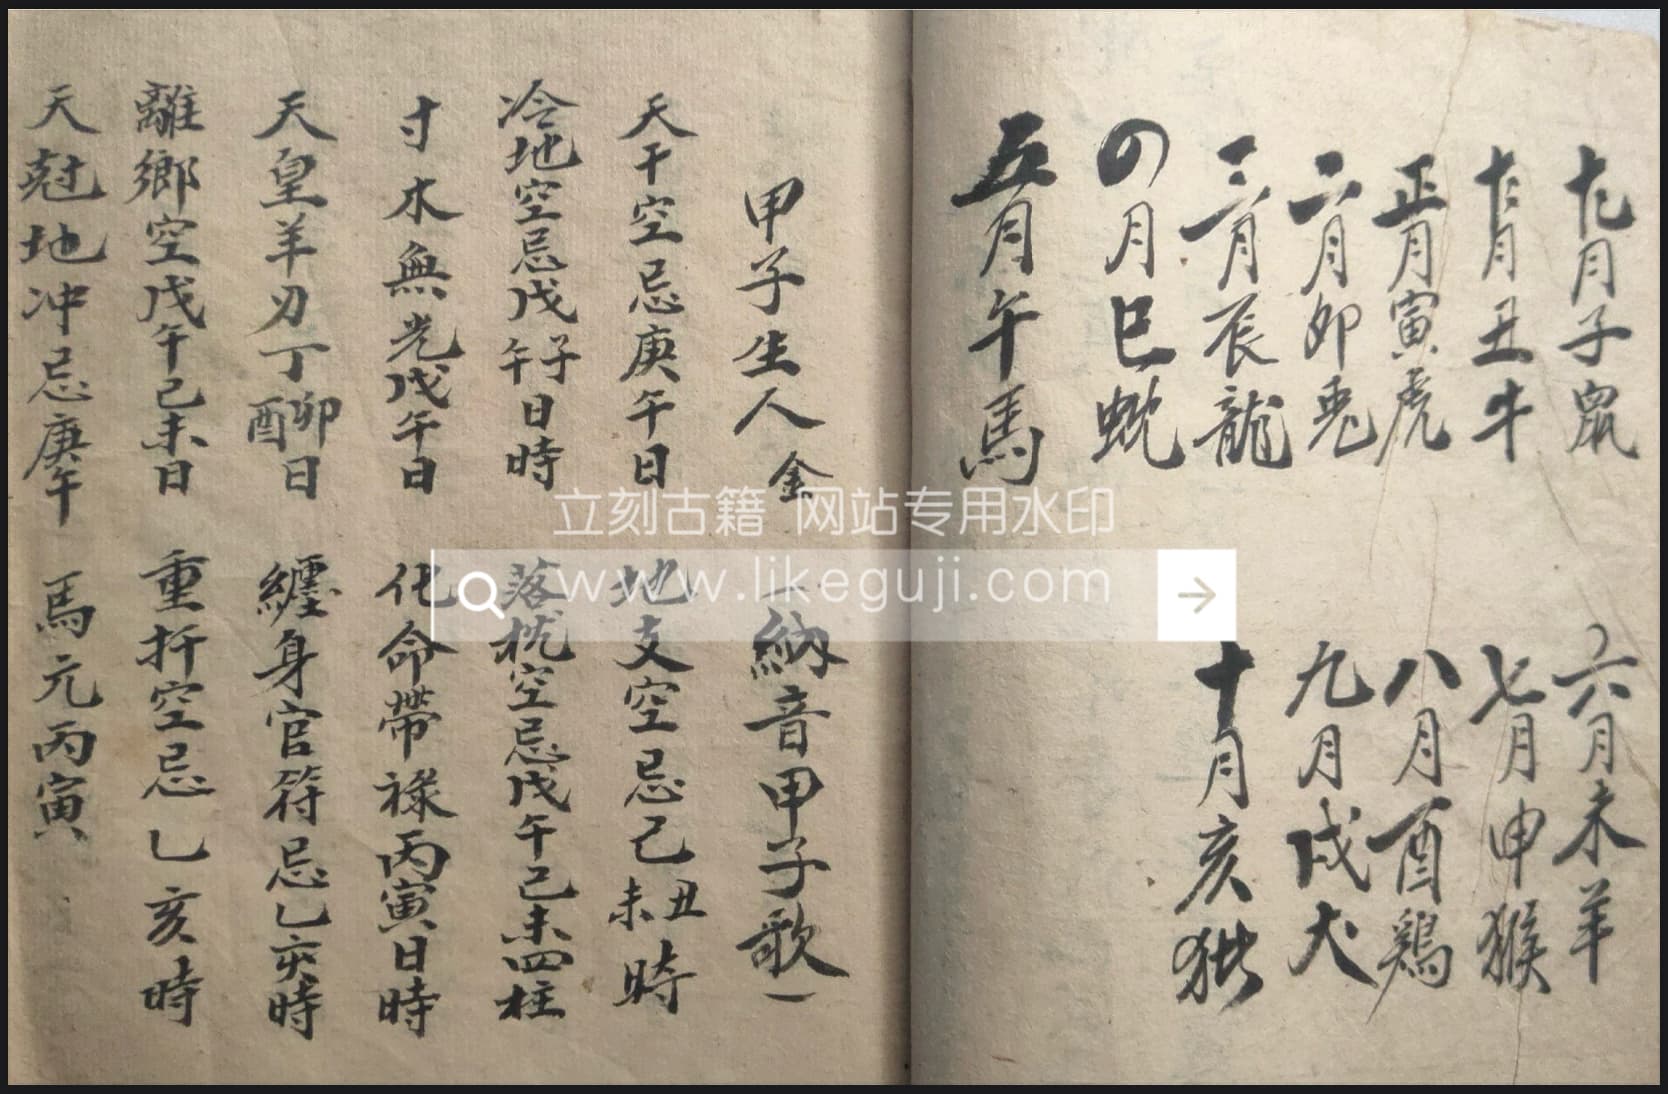 十一月子鼠
十二月丑牛
正月寅虎
二月卯兎
三月辰龍
四月巳蛇
五月午馬
六月未羊
七月申猴
八月酉鶏
九月戌犬
十月亥猪
甲子生人金
納音甲子歌一
天干空忌庚午日
地支空忌己丑未時
冷地空忌戊子午日時
落枕空忌戊午己未四柱
寸水無光戊午日
化命帶禄丙寅日時
天皇羊刃丁卯酉日
纏身官符忌乚亥時
離鄉空戊午己未日
重折空忌乚亥時
天尅地冲忌庚午
馬元丙寅
立刻古籍 网站专用水印
www.likeguji.com